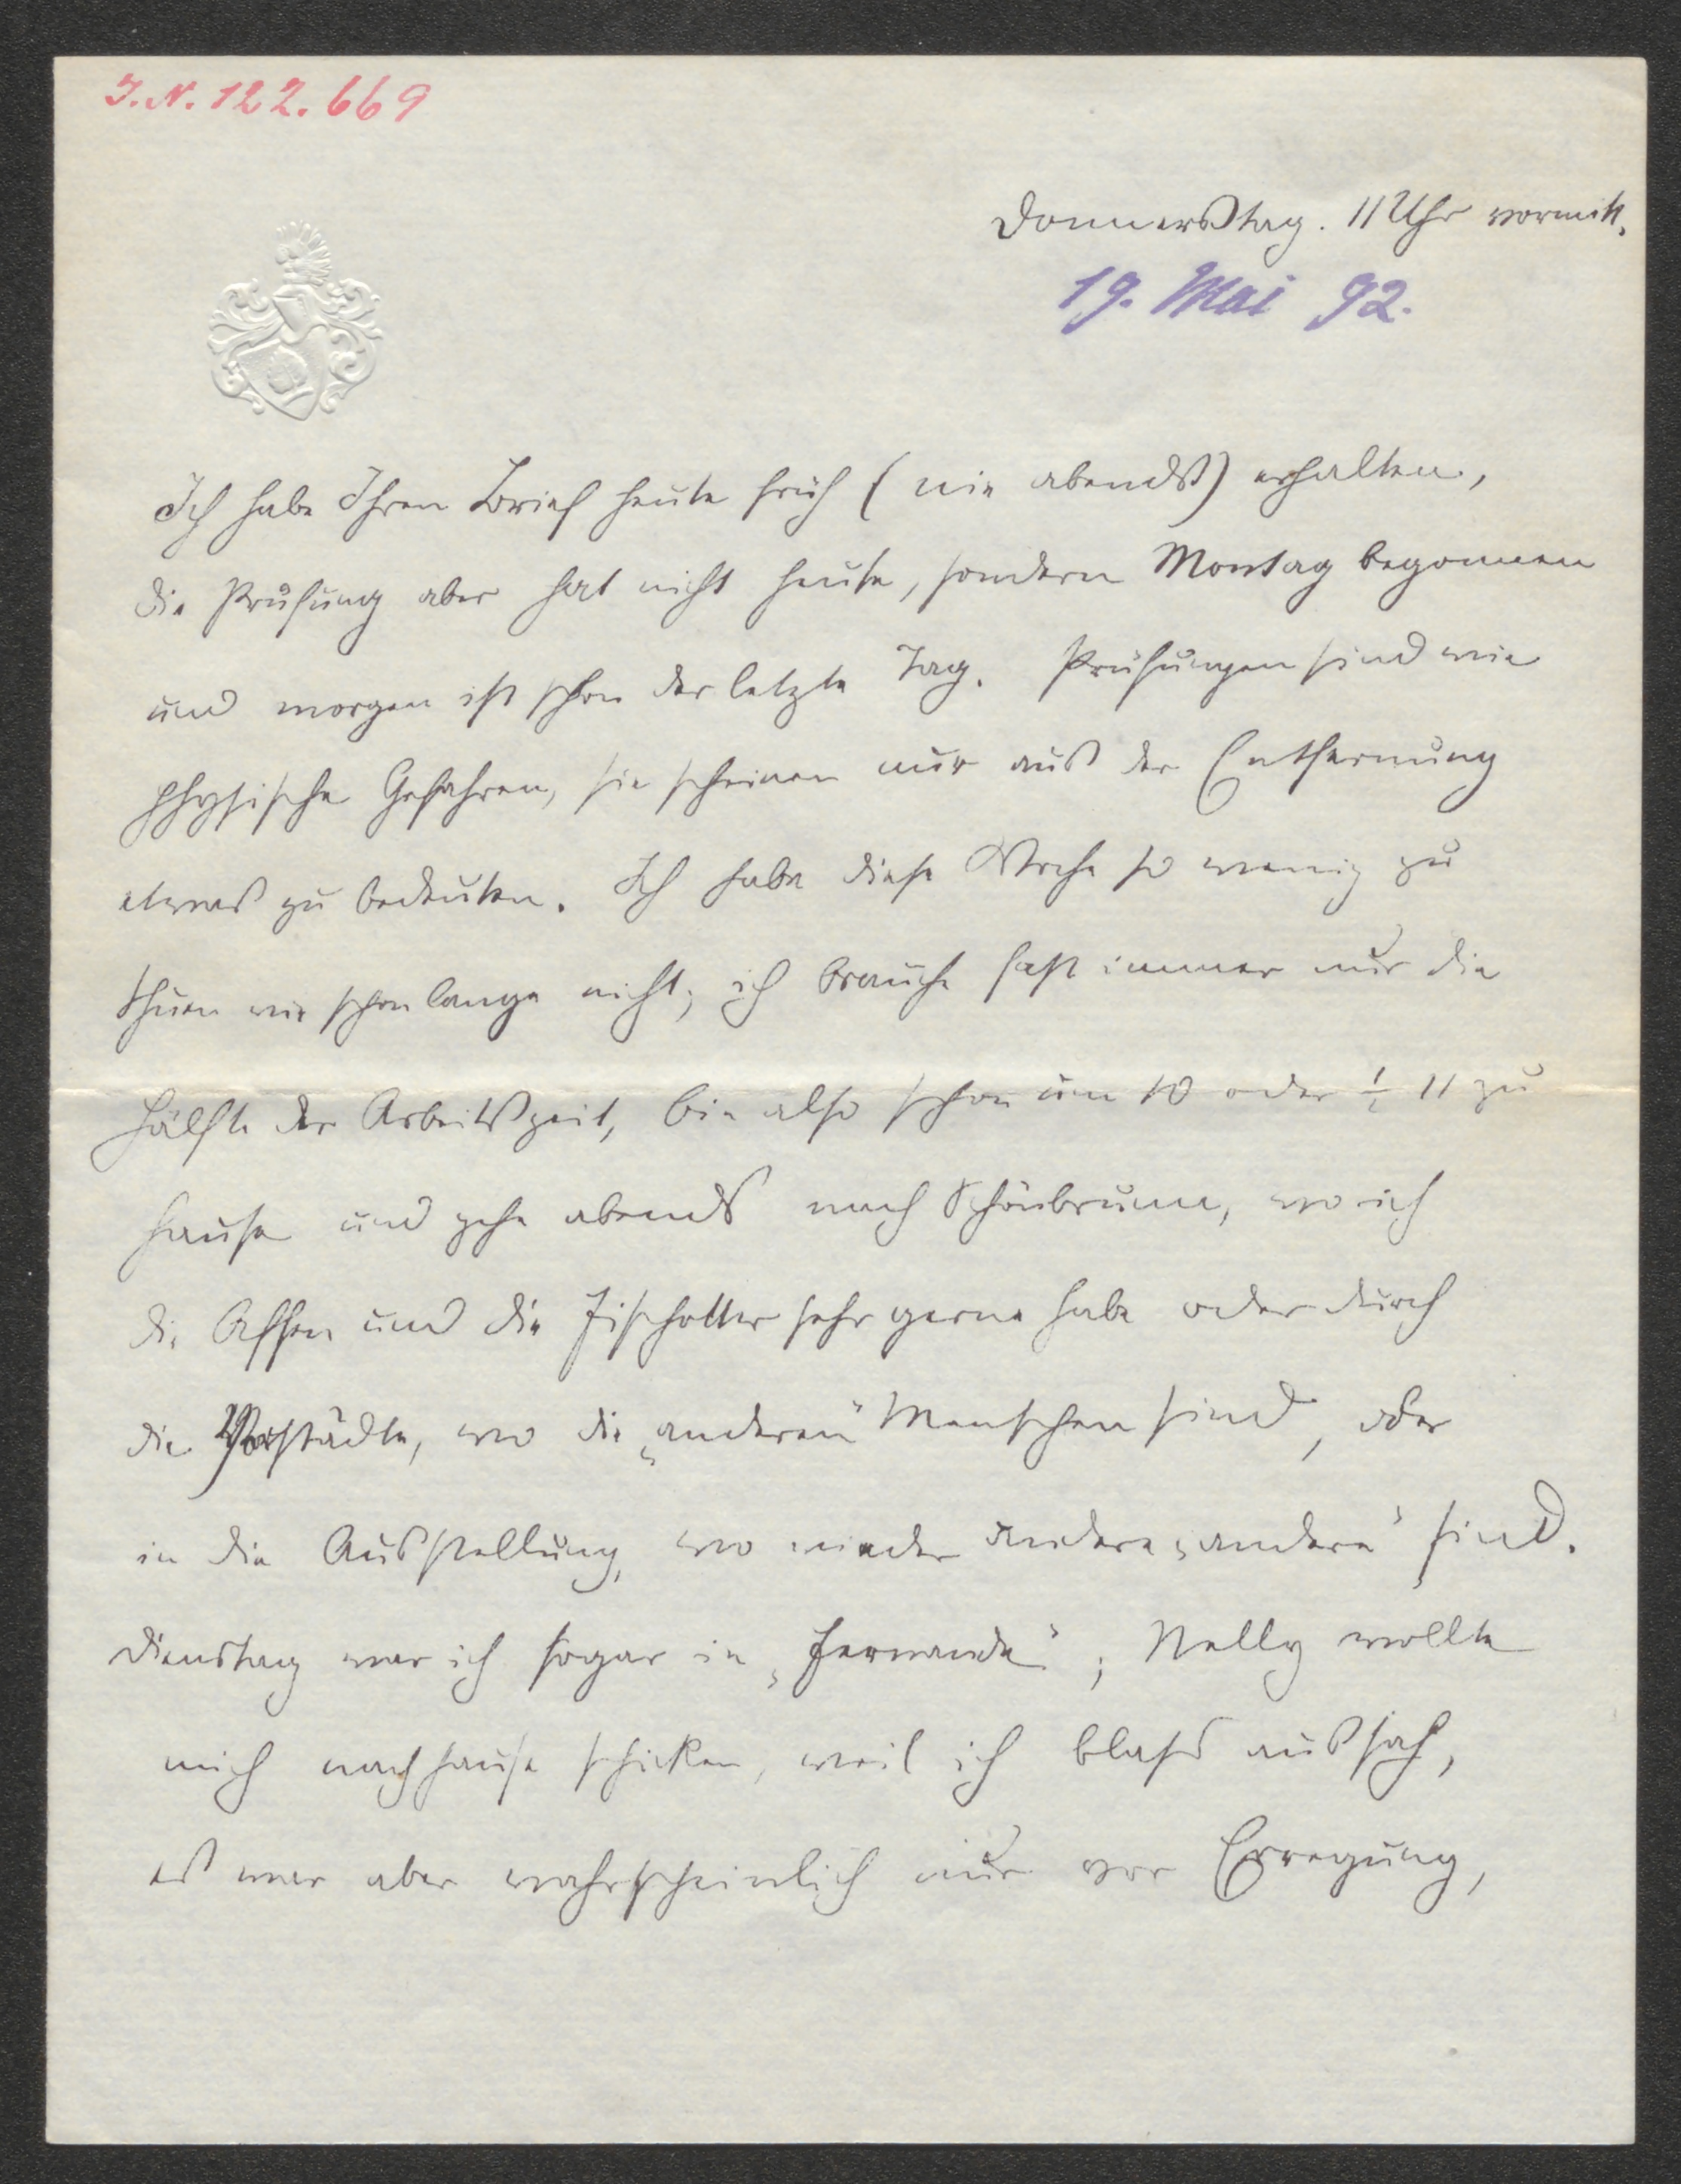 J. N. 122.669
Donnerstag. 11 Uhr vormitt.
19. Mai 92.
Ich habe Ihren Brief heute früh (nie abends) erhalten,
die Prüfung aber hat nicht heute, sondern Montag begonnen
und morgen ist schon der letzte Tag. Prüfungen sind wie
physische Gefahren, sie scheinen nur aus der Entfernung
etwas zu bedeuten. Ich habe diese Woche so wenig zu
thuen wie schon lange nicht; ich brauche fast immer nur die
Hälfte der Arbeitszeit, bin also schon um 10 oder ½ 11 zu
hause und gehe abends nach Schönbrunn, wo ich
die Affen und die Fischotter sehr gerne habe oder durch
die Vorstädte, wo die „anderen“ Menschen sind, oder
in die Ausstellung, wo wieder andere „andere“ sind.
Dienstag war ich sogar in „Fernande“; Nelly wollte
mich nachhause schicken, weil ich blass aussah,
es war aber wahrscheinlich nur vor Erregung,